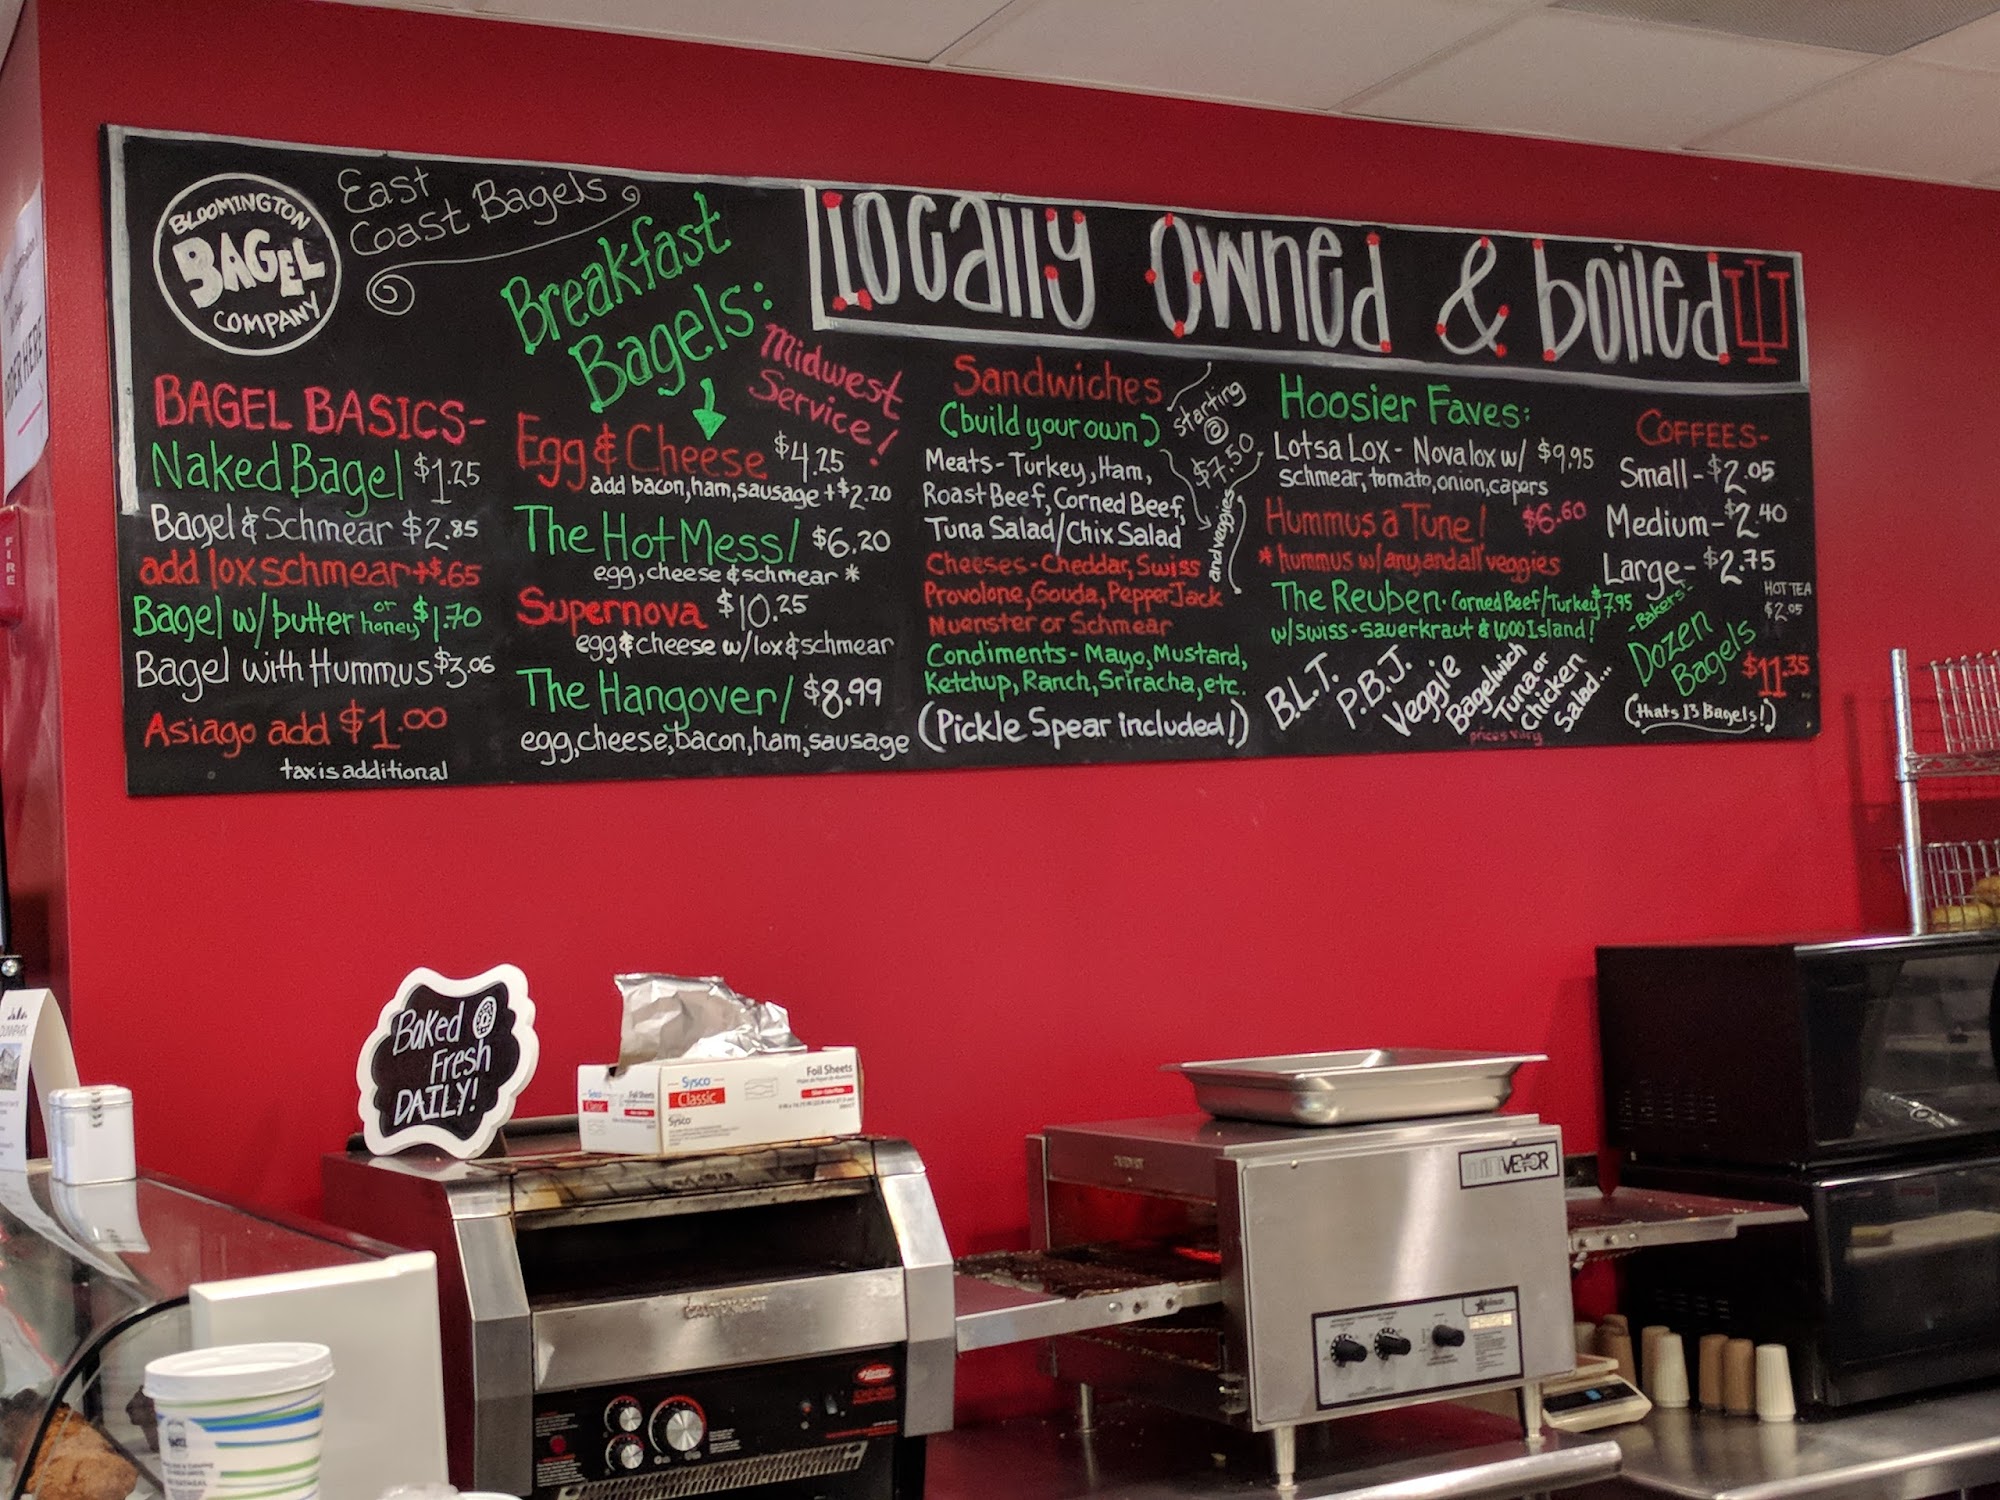 BLOOMINGTON
BAGEL
COMPANY
East
Coast Bagels
Locally Owned & boiled
BAGEL BASICS-
Naked Bagel $1.25
Bagel & Schmear $2.85
add lox schmear +$.65
Bagel w/butter or honey $1.70
Bagel with Hummus $3.06
Asiago add $1.00
tax is additional
Breakfast
Bagels:
Midwest
Service!
Egg & Cheese $4.25
add bacon, ham, sausage +$2.20
The Hot Mess/ $6.20
egg, cheese & schmear *
Supernova $10.25
egg & cheese w/lox & schmear
The Hangover/ $8.99
egg, cheese, bacon, ham, sausage
Sandwiches
(build your own)
starting
@
$7.50
and veggies
Meats - Turkey, Ham,
Roast Beef, Corned Beef,
Tuna Salad/Chix Salad
Cheeses - Cheddar, Swiss
Provolone, Gouda, Pepper Jack
Muenster or Schmear
Condiments - Mayo, Mustard,
Ketchup, Ranch, Sriracha, etc.
(Pickle Spear included!)
Hoosier Faves:
Lotsa Lox - Nova lox w/ $9.95
schmear, tomato, onion, capers
Hummus a Tune! $6.60
* hummus w/any and all veggies
The Reuben - Corned Beef/Turkey $7.95
w/swiss - sauerkraut & 1,000 Island!
B.L.T.
P.B.J.
Veggie
Bagelwich
Tuna or
Chicken
Salad...
prices vary
COFFEES-
Small - $2.05
Medium - $2.40
Large - $2.75
HOT TEA
$2.05
-Bakers'-
Dozen
Bagels $11.35
(thats 13 Bagels!)
ORDER HERE
FIRE
Baked
Fresh
DAILY!
Sysco
Classic
Foil Sheets
Sysco
Foil Sheets
Sysco
Classic
miniVEYOR
Hatco